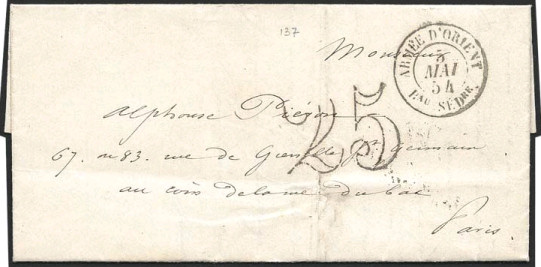 137
Monsieur
ARMÉE D'ORIENT
5
MAI
54
Eau SÉDRE
Alphonse Pigeon
25
67. ou 83. rue de Grenelle St. Germain
au coin de la rue du bac
Paris.